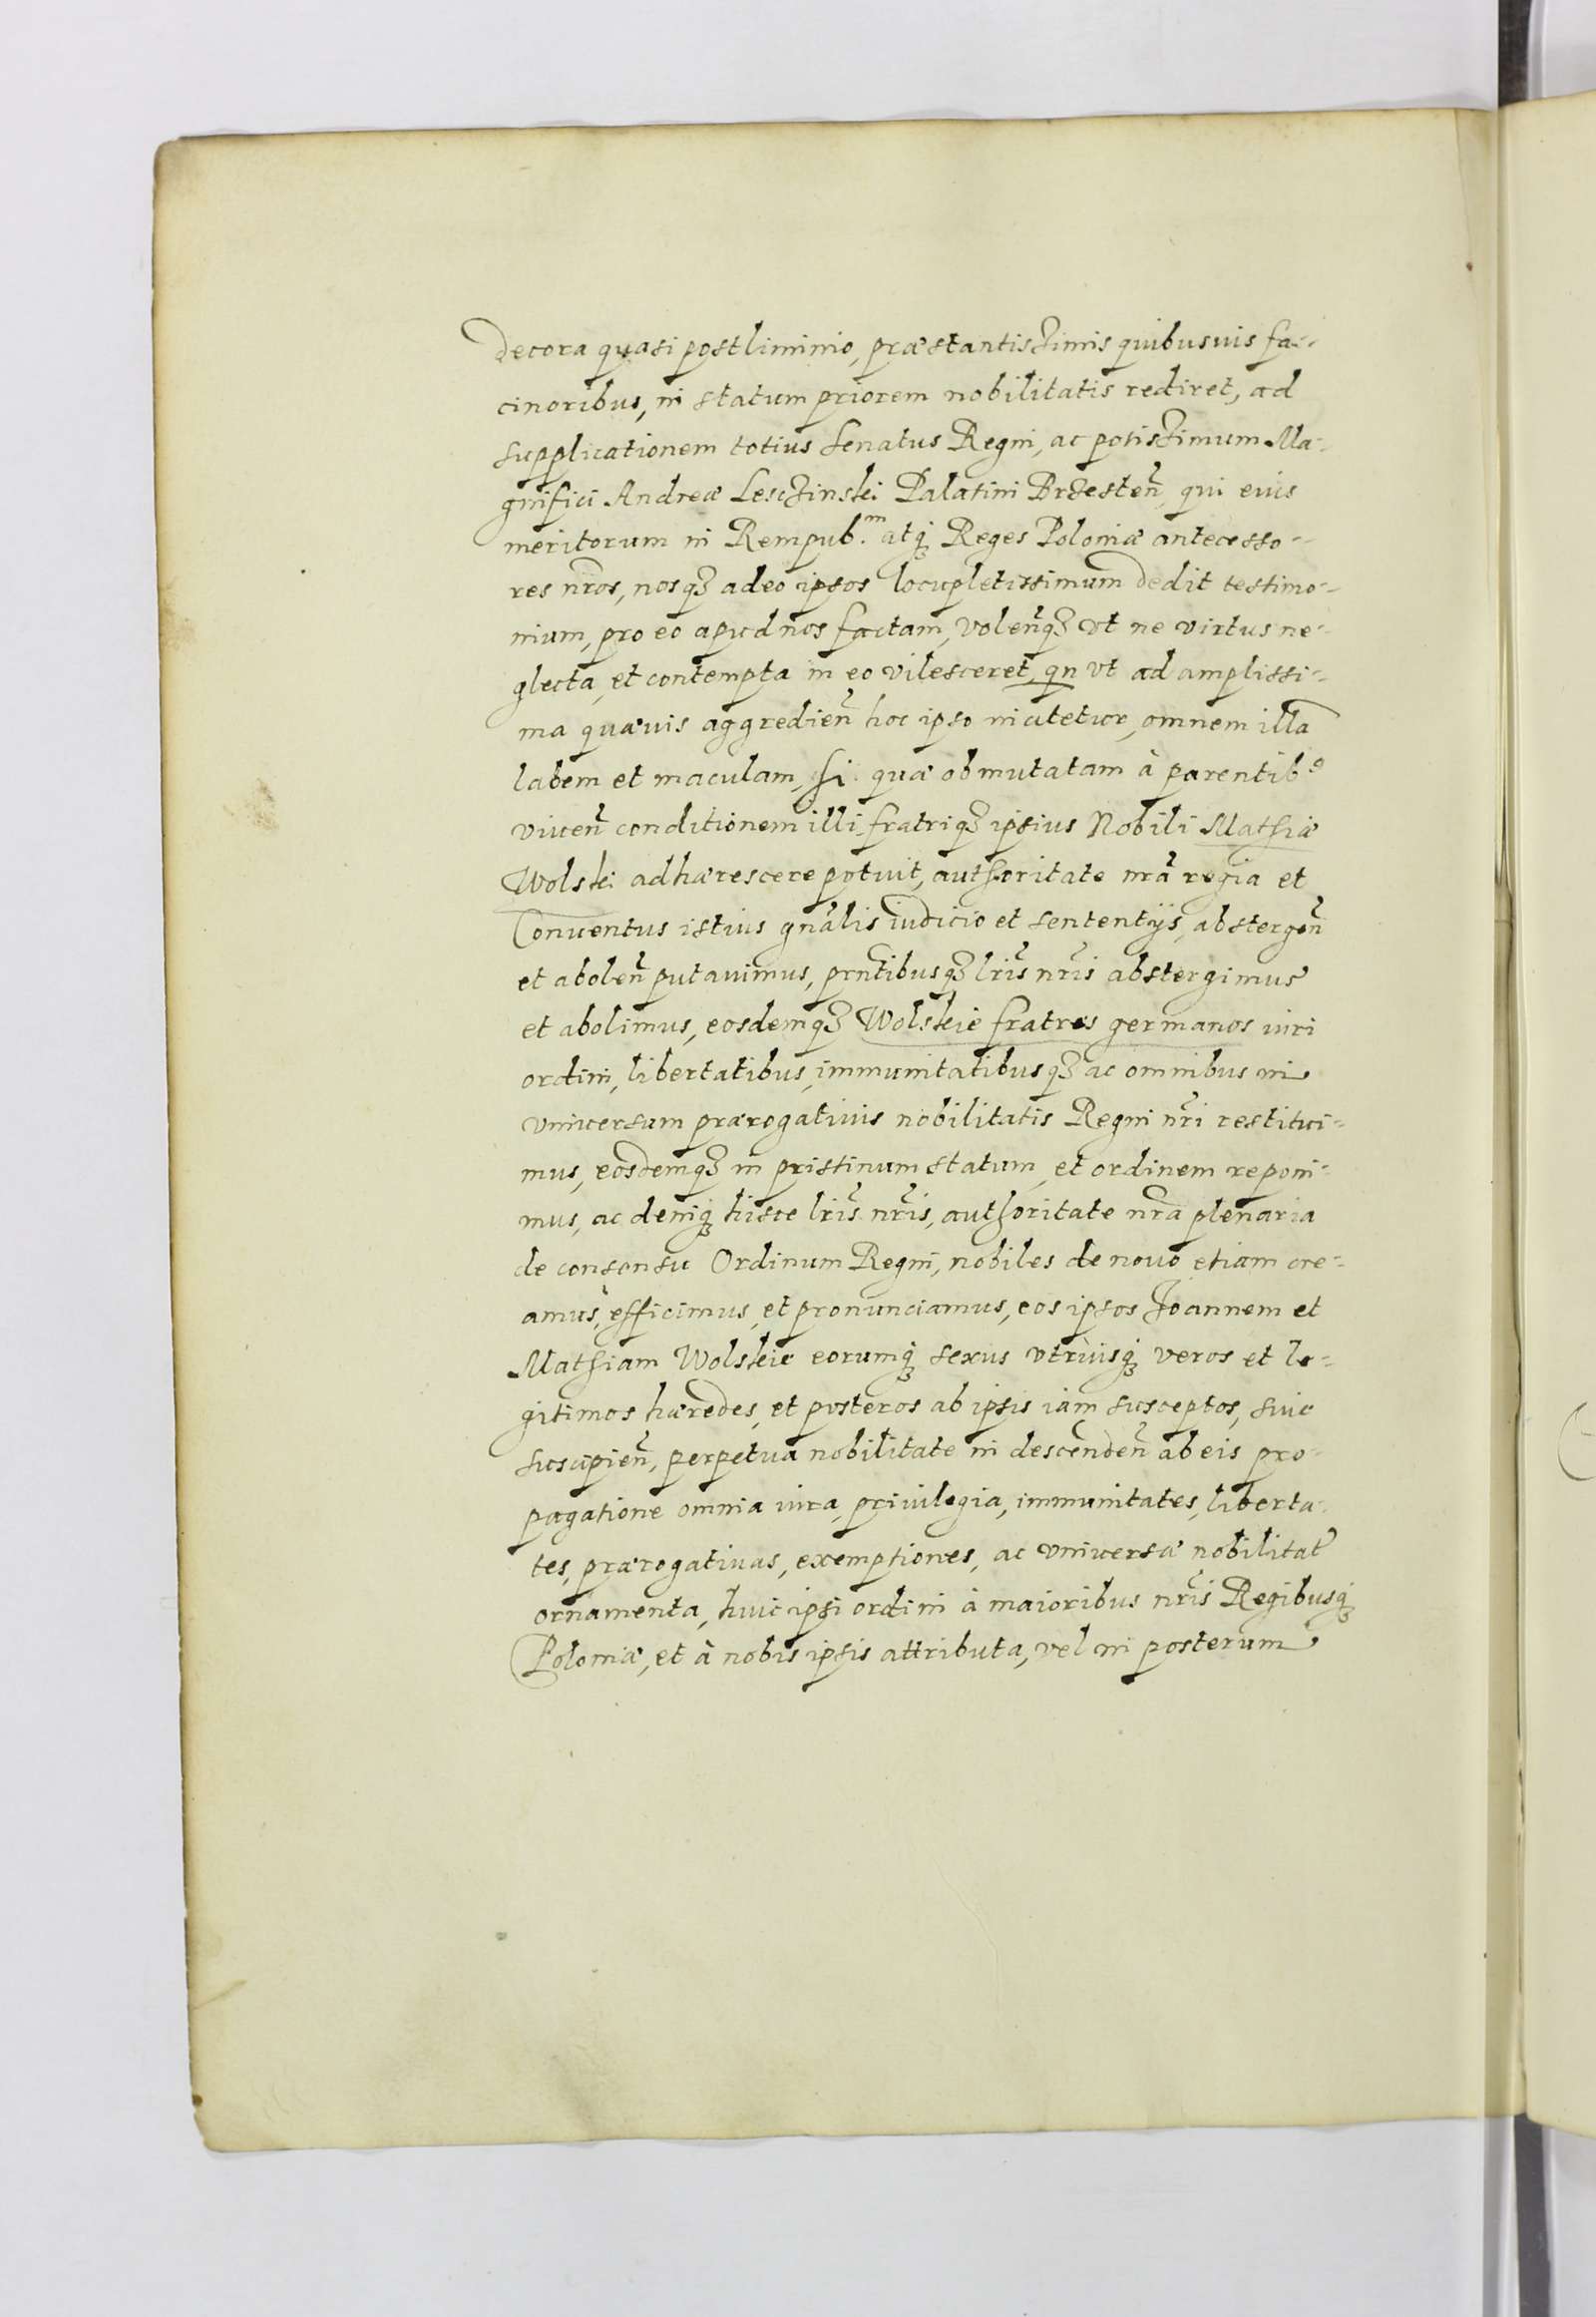 decora quasi postliminio, præstantissimis quibusuis fa-
cinoribus, in statum priorem nobilitatis rediret, ad
supplicationem totius Senatus Regni, ac potissimum Ma-
gnifici Andreæ Lesczinski Palatini Brzesteñ, qui eius
meritorum in Rempub.ᵐ atqꝫ Reges Poloniæ antecesso-
res nr̃os, nosqꝫ adeo ipsos locupletissimum dedit testimo-
nium, pro eo apud nos factam, voleñqꝫ vt ne virtus ne-
glecta, et contempta in eo vilesceret, qn vt ad amplissi-
ma quæuis aggredieñ hoc ipso incitetur, omnem illã
labem et maculam, si quæ ob mutatam à parentibꝰ
viuceñ conditionem illi, fratriqꝫ ipsius Nobili Mathiæ
Wolski adhærescere potuit, authoritate nr̃a regia et
Conuentus istius gñalis iudicio et sententijs, abstergeñ
et aboleñ putauimus, prñtibusqꝫ lr̃is nr̃is abstergimus
et abolimus, eosdemqꝫ Wolskie fratres germanos iuri
ordini, libertatibus, immunitatibusqꝫ ac omnibus in
vniuersum prærogatiuis nobilitatis Regni nr̃i restitui-
mus, eosdemqꝫ in pristinum statum, et ordinem reponi-
mus, ac deniqꝫ hisce lr̃is nr̃is, authoritate nr̃a plenaria
de consensu Ordinum Regni, nobiles de nouo etiam cre-
amus, efficimus, et pronunciamus, eos ipsos Joannem et
Mathiam Wolskie eorumqꝫ sexus vtriusqꝫ veros et le-
gitimos hæredes, et posteros ab ipsis iam susceptos, siue
suscipieñ, perpetua nobilitate in descendeñ ab eis pro-
pagatione omnia iura, priuilegia, immunitates, liberta-
tes, prærogatiuas, exemptiones, ac vniuersæ nobilitat̃
ornamenta, huic ipsi ordini à maioribus nr̃is Regibusqꝫ
Poloniæ, et à nobis ipsis attributa, vel in posterum